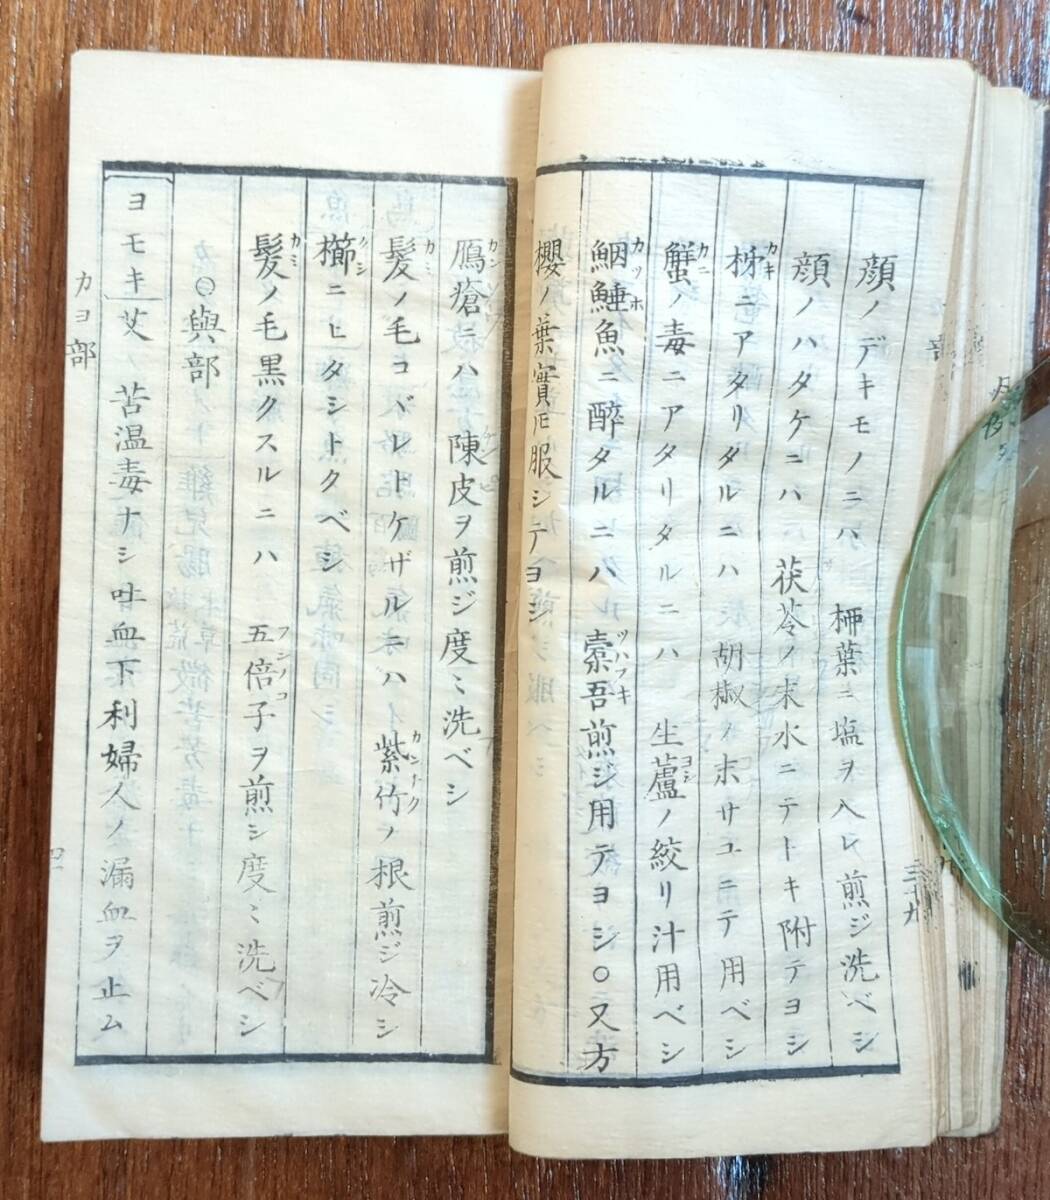 顔ノデキモノニハ 栁葉ニ塩ヲ入レ煎ジ洗ベシ
顔ノハタケニハ 茯苓ノ末水ニテトキ附テヨシ
柹ニアタリタルニハ 胡椒ノ末サユニテ用ベシ
カキ
蟹ノ毒ニアタリタルニハ 生蘆ノ絞リ汁用ベシ
カニ ヨシ
鮂鯅魚ニ醉タルニハ 橐吾煎ジ用テヨシ〇又方
カツホ ツハブキ
櫻ノ葉實𪜈服シテヨシ
鴈瘡ニハ 陳皮ヲ煎ジ度〻洗ベシ
カン チンピ
髪ノ毛コバレトケザルニハ 紫竹ノ根煎ジ冷シ
カミ
櫛ニヒタシトクベシ
クシ
髪ノ毛黒クスルニハ 五倍子ヲ煎シ度〻洗ベシ
カミ フシノコ
〇與部
ヨモキ 艾 苦温毒ナシ 吐血下利婦人ノ漏血ヲ止ム
カヨ部